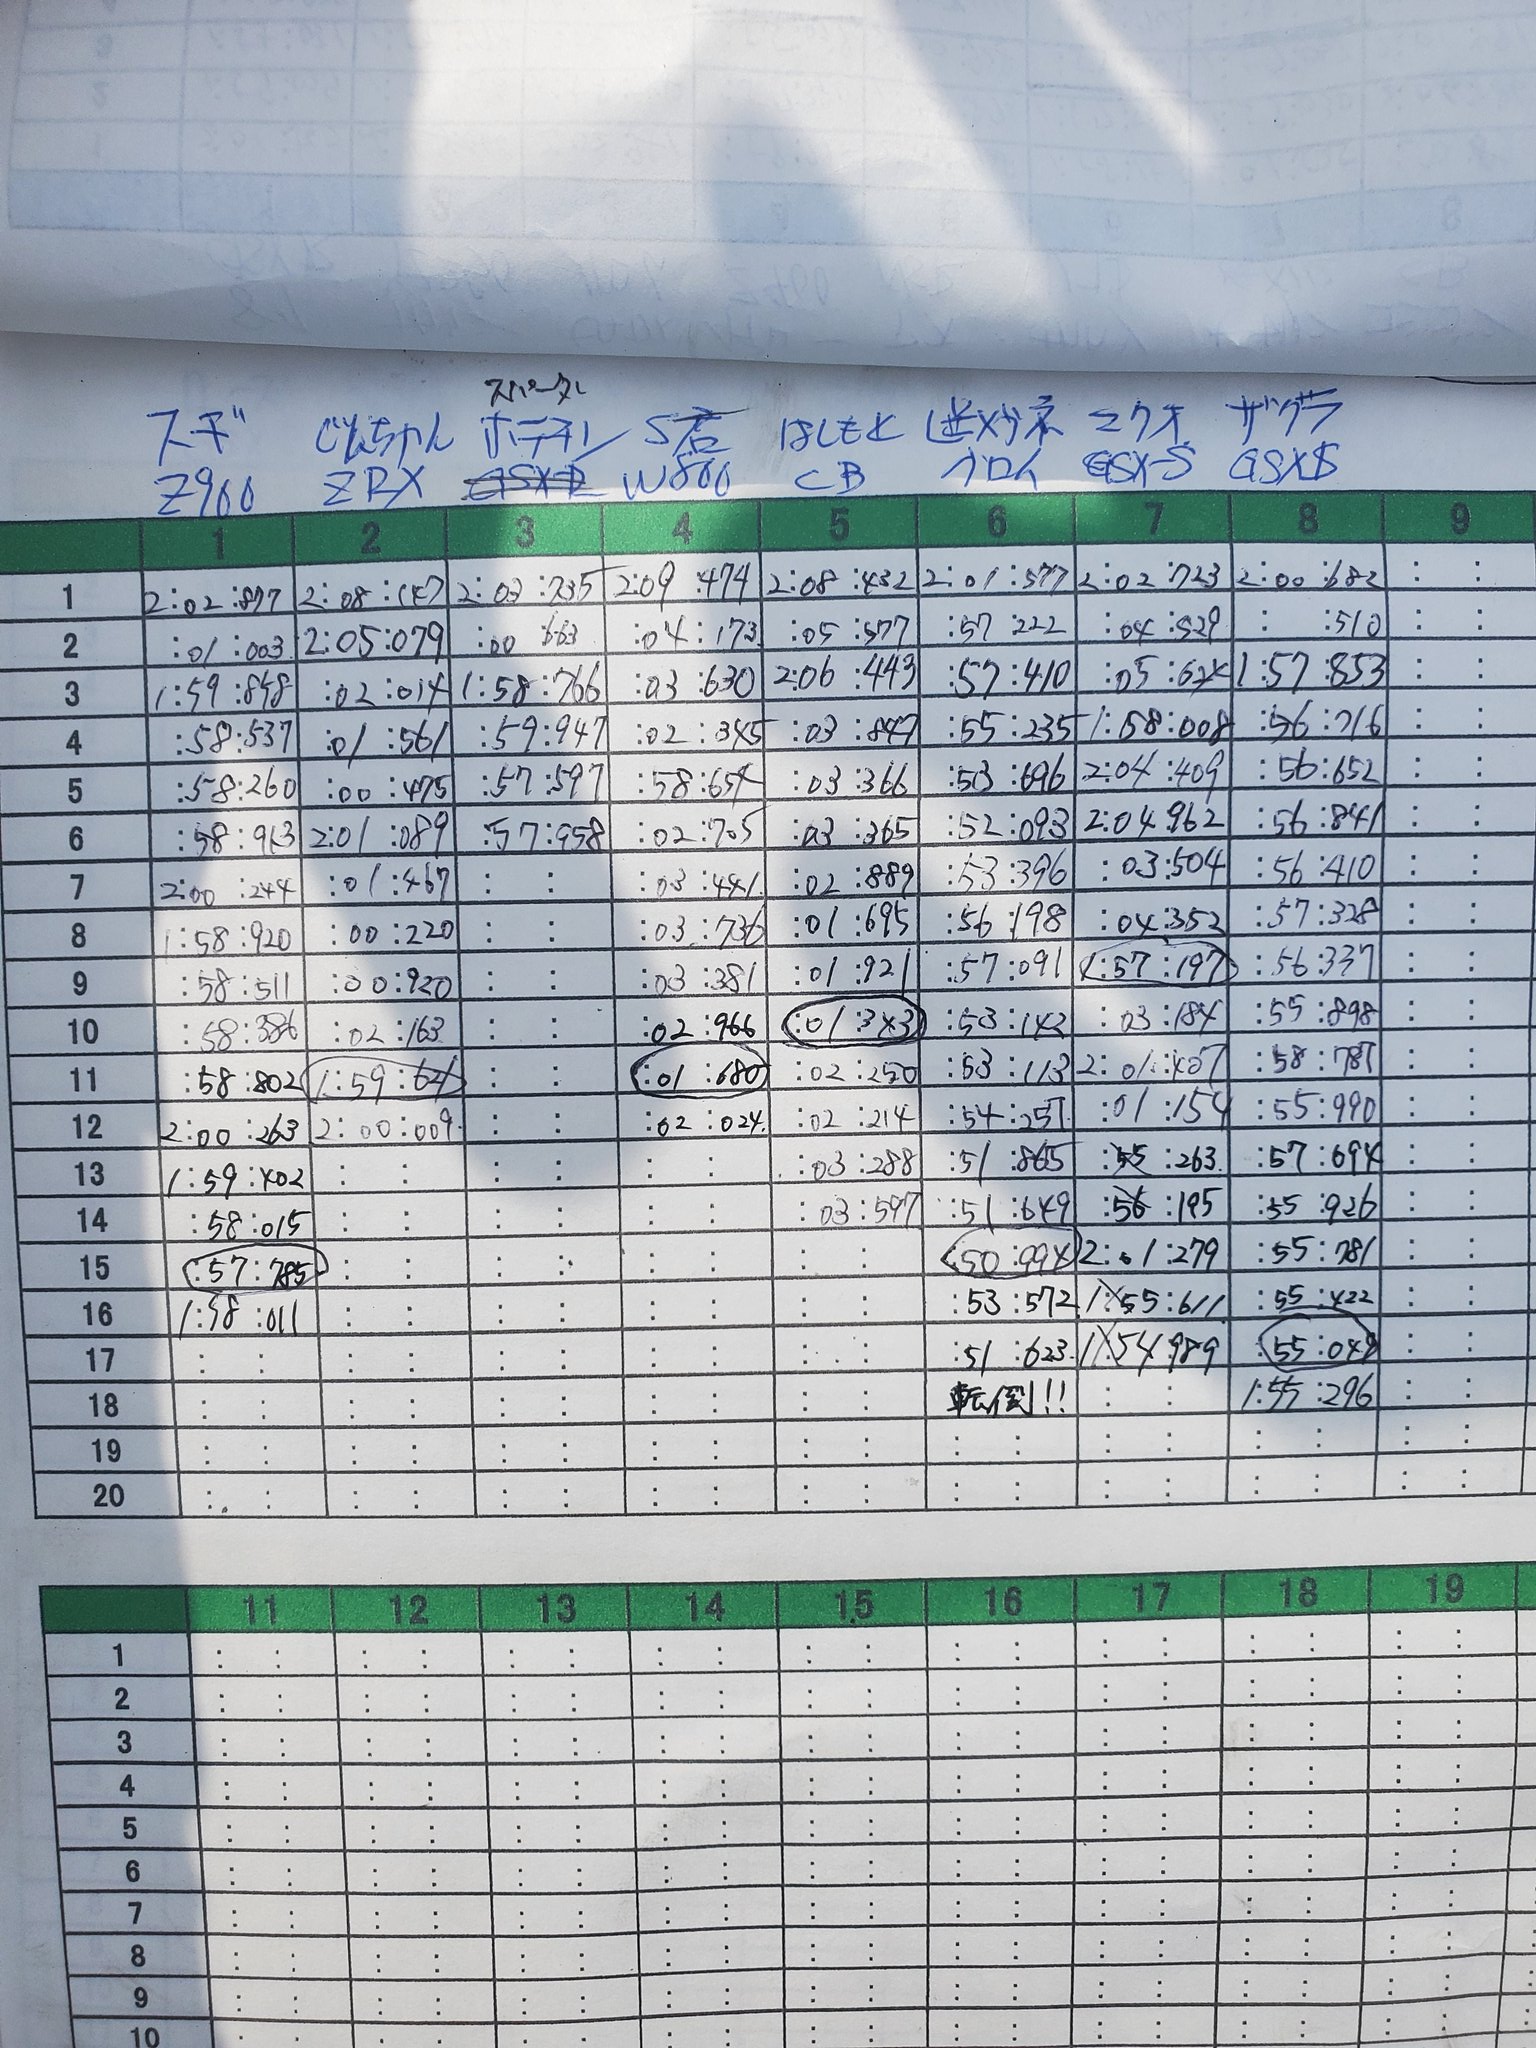 スパーダ
スギ じんちゃん ホーネオン S君 はしもと 逆メガネ ミクオ ザクラ
Z900 ZRX GSXR W800 CB グロム GSX-S GSXS
1 2 3 4 5 6 7 8 9
1 2:02:877 2:08:147 2:03:735 2:09:474 2:08:432 2:01:577 2:02:723 2:00:682 : :
2 :01:003 2:05:079 :00 663 :04:173 :05:577 :57:222 :04:529 : :510 : :
3 1:59:848 :02:014 1:58:766 :03:630 2:06:443 :57:410 :05:624 1:57:853 : :
4 :58:537 :01:561 :59:947 :02:345 :03:847 :55:235 1:58:008 :56:716 : :
5 :58:260 :00:475 :57:597 :58:654 :03:366 :53:696 2:04:409 :56:652 : :
6 :58:913 2:01:089 :57:958 :02:705 :03:365 :52:093 2:04:962 :56:841 : :
7 2:00:244 :01:467 : : :03:441 :02:889 :53:396 :03:504 :56:410 : :
8 1:58:920 :00:220 : : :03:736 :01:695 :56:198 :04:352 :57:328 : :
9 :58:511 :00:920 : : :03:381 :01:921 :57:091 1:57:197 :56:337 : :
10 :58:386 :02:163 : : :02:966 :01:343 :53:142 :03:184 :55:898 : :
11 :58:802 1:59:621 : : :01:680 :02:250 :53:113 2:01:407 :58:787 : :
12 2:00:263 2:00:009 : : :02:024 :02:214 :54:257 :01:154 :55:990 : :
13 1:59:402 : : : : : : :03:288 :51:865 :55:263 :57:694 : :
14 :58:015 : : : : : : :03:597 :51:649 :56:195 :55:926 : :
15 :57:785 : : : : : : : : :50:994 2:01:279 :55:781 : :
16 1:58:011 : : : : : : : : :53:572 1:55:611 :55:422 : :
17 : : : : : : : : : : :51:623 1:54:989 :55:049 : :
18 : : : : : : : : : : 転倒!! : : 1:55:296 : :
19 : : : : : : : : : : : : : : : : : :
20 : : : : : : : : : : : : : : : : : :
11 12 13 14 15 16 17 18 19
1 : : : : : : : : : : : : : : : : : :
2 : : : : : : : : : : : : : : : : : :
3 : : : : : : : : : : : : : : : : : :
4 : : : : : : : : : : : : : : : : : :
5 : : : : : : : : : : : : : : : : : :
6 : : : : : : : : : : : : : : : : : :
7 : : : : : : : : : : : : : : : : : :
8 : : : : : : : : : : : : : : : : : :
9 : : : : : : : : : : : : : : : : : :
10 : : : : : : : : : : : : : : : : : :